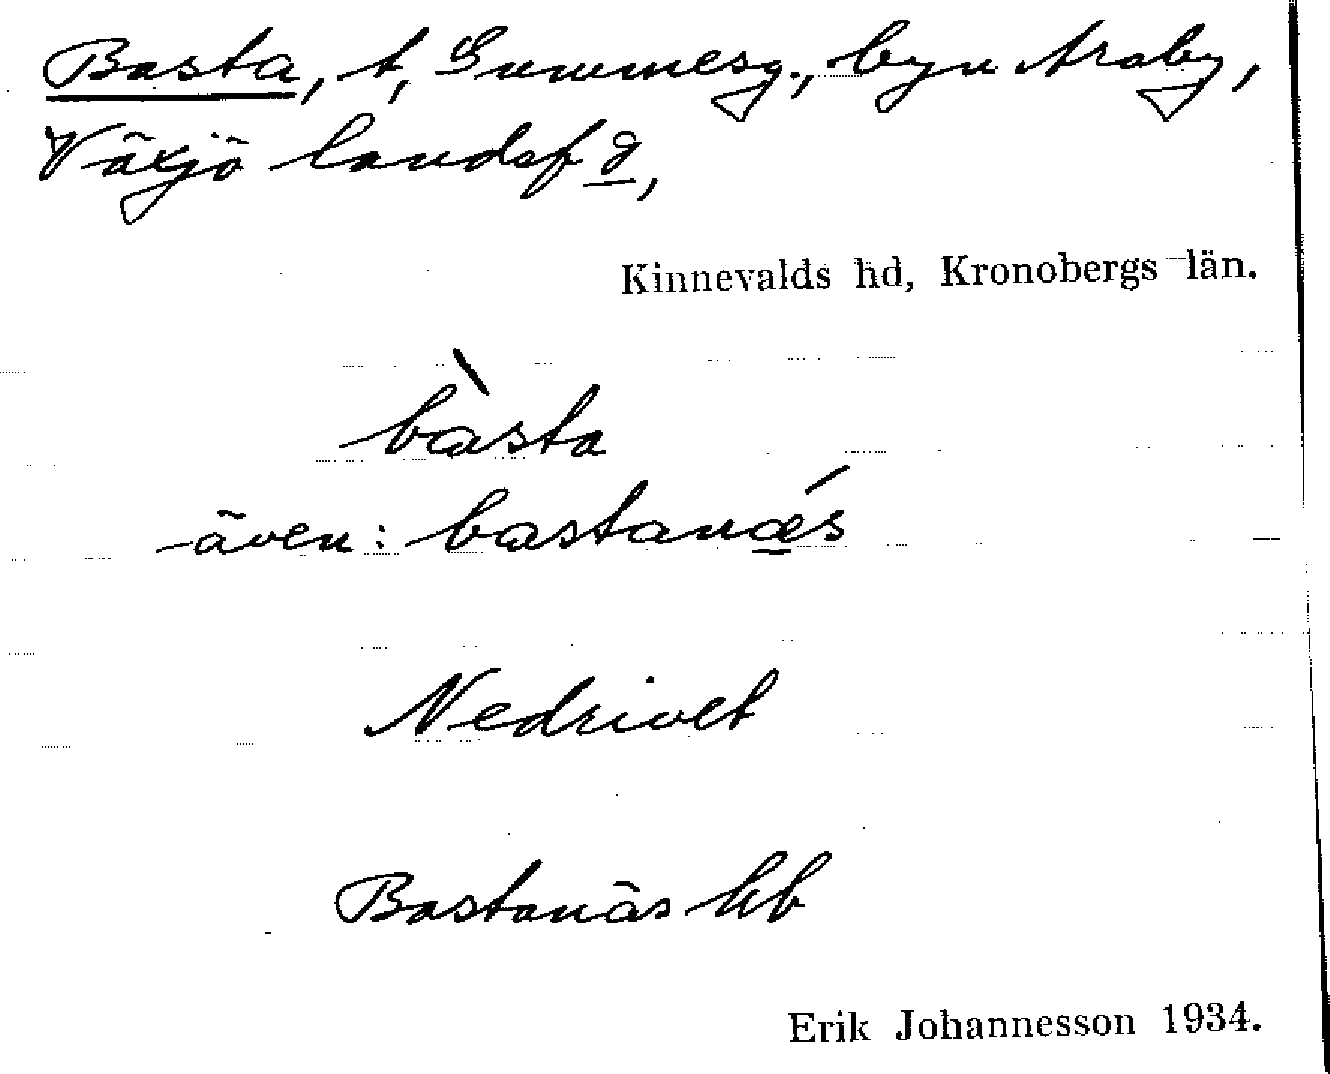 Basta, t, Gummesg., byn Araby,
Växjö landsfg,
Kinnevalds hd, Kronobergs län.
bàsta
även: bastanǽs
Nedrivet
Bastanäs hb
Erik Johannesson 1934.